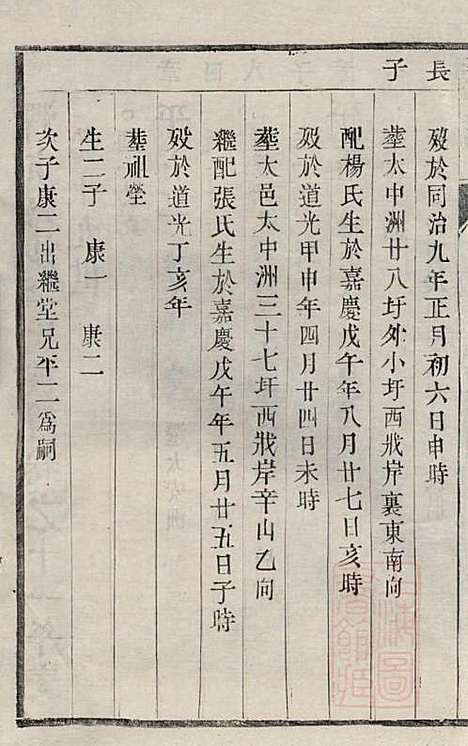 長子
歿於同治九年正月初六日申時
塟太中洲廿八圩外小圩西戕岸裏東南向
配楊氏生於嘉慶戊午年八月廿七日亥時
歿於道光甲申年四月廿四日未時
塟大邑太中洲三十七圩西戕岸辛山乙向
繼配張氏生於嘉慶戊午年五月廿五日子時
歿於道光丁亥年
塟祖塋
生二子 康一 康二
次子康二出繼堂兄平二為嗣